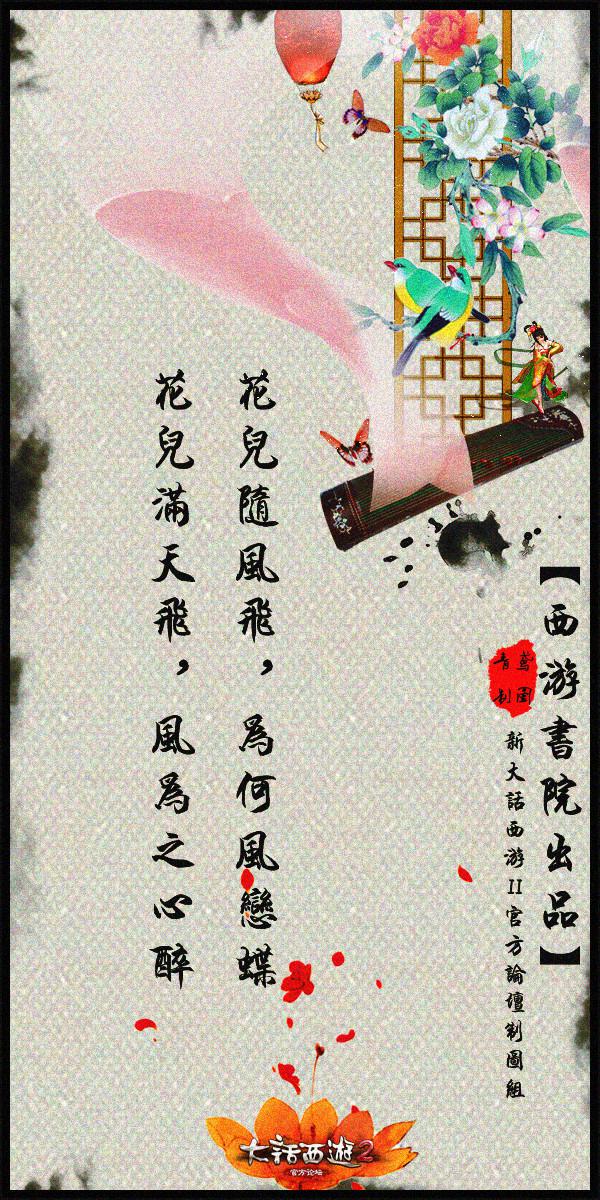 【西游書院出品】
鸢圖
音制
新大話西游II官方論壇制圖組
花兒隨風飛，為何風戀蝶
花兒滿天飛，風為之心醉
大話西遊2
官方论坛